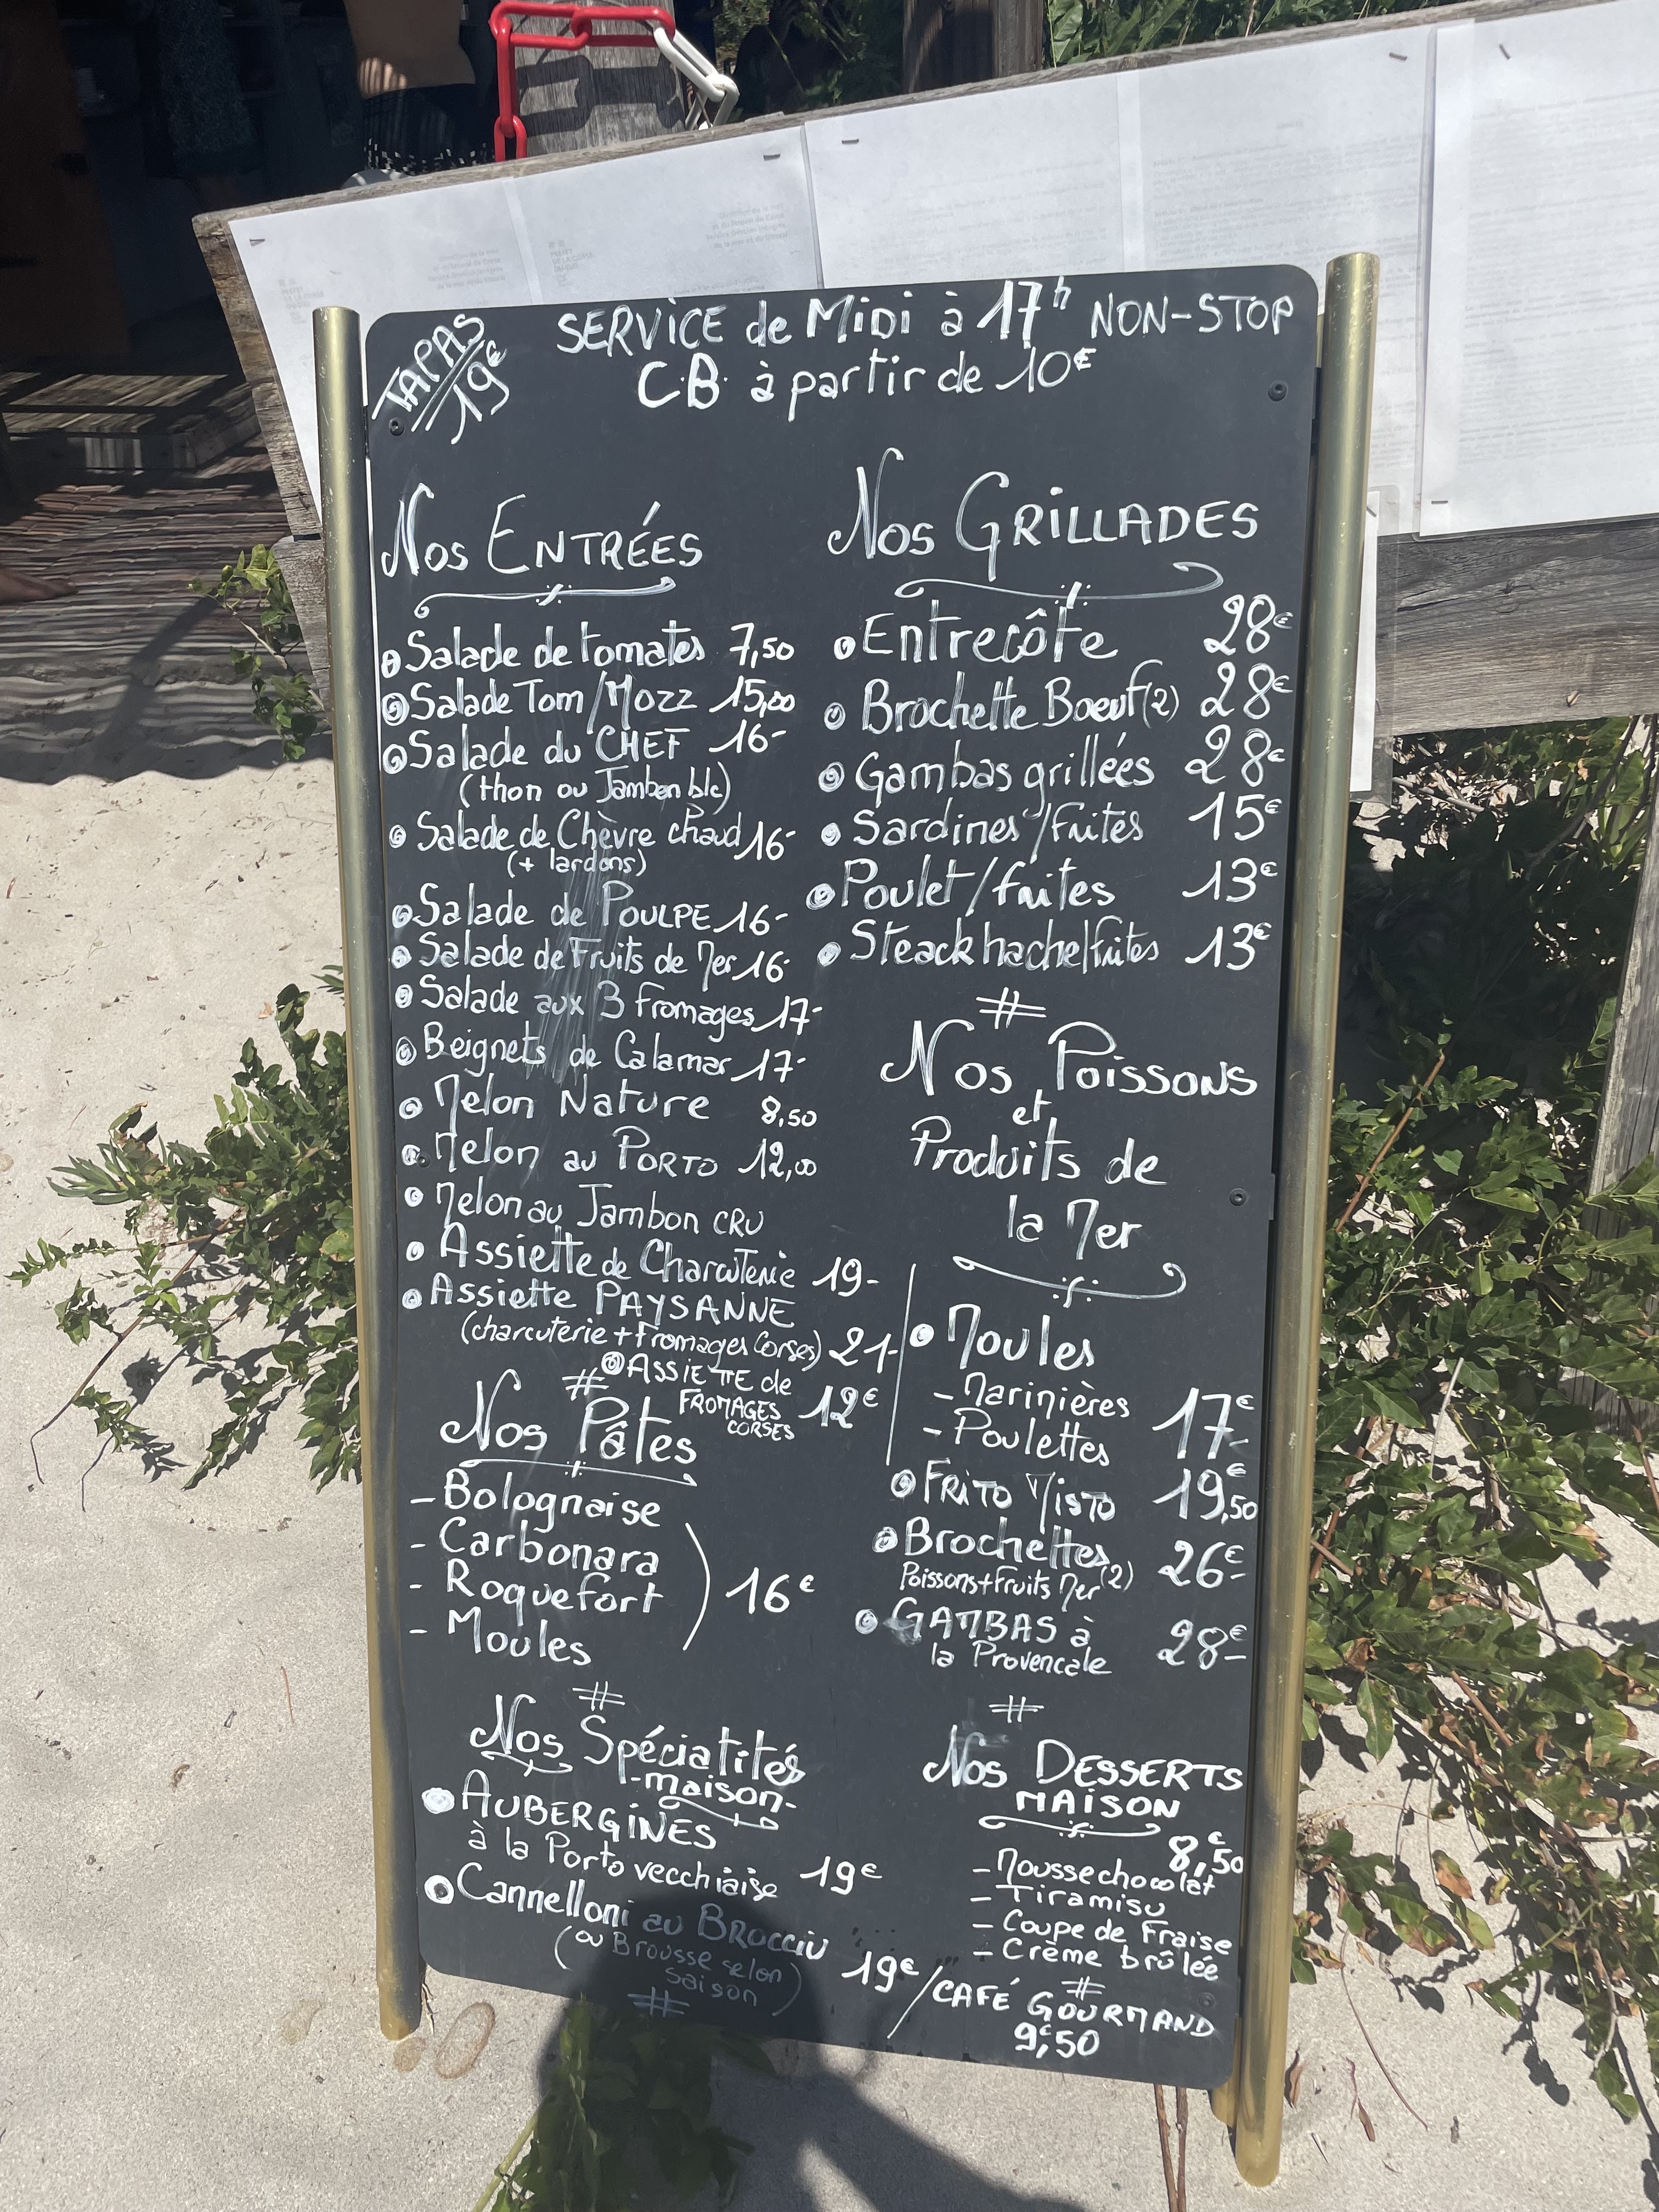 TAPAS
19€
SERVICE de MiDi à 17h NON-STOP
C.B. à partir de 10€
Nos ENTRÉES
Salade de tomates 7,50
Salade Tom/Mozz 15,00
Salade du CHEF 16-
(thon ou Jambon blc)
Salade de Chèvre chaud 16-
(+ lardons)
Salade de POULPE 16-
Salade de Fruits de Mer 16-
Salade aux 3 fromages 17-
Beignets de Calamar 17-
Melon Nature 8,50
Melon au PORTO 12,00
Melon au Jambon CRU
Assiette de Charcuterie 19-
Assiette PAYSANNE
(charcuterie + fromages Corses) 21-
ASSIETTE de
FROMAGES 12€
CORSES
Nos Pâtes
- Bolognaise
- Carbonara
- Roquefort
- Moules
16€
Nos Spécialités
-maison-
AUBERGINES
à la Porto vecchiaise 19€
Cannelloni au BROCCIU
(ou Brousse selon
saison) 19€
Nos GRiLLADES
Entrecôte 28€
Brochette Boeuf (2) 28€
Gambas grillées 28€
Sardines/frites 15€
Poulet/frites 13€
Steack haché/frites 13€
Nos Poissons
et
Produits de
la Mer
Moules
- Marinières
- Poulettes
17€-
FRiTO MisTO 19€,50
Brochettes 26€-
Poissons+fruits Mer (2)
GAMBAS à
la Provencale 28€-
Nos DESSERTS
MAiSON
8€,50
- Mousse chocolat
- Tiramisu
- Coupe de Fraise
- Crème brûlée
/CAFÉ GOURMAND
9€,50